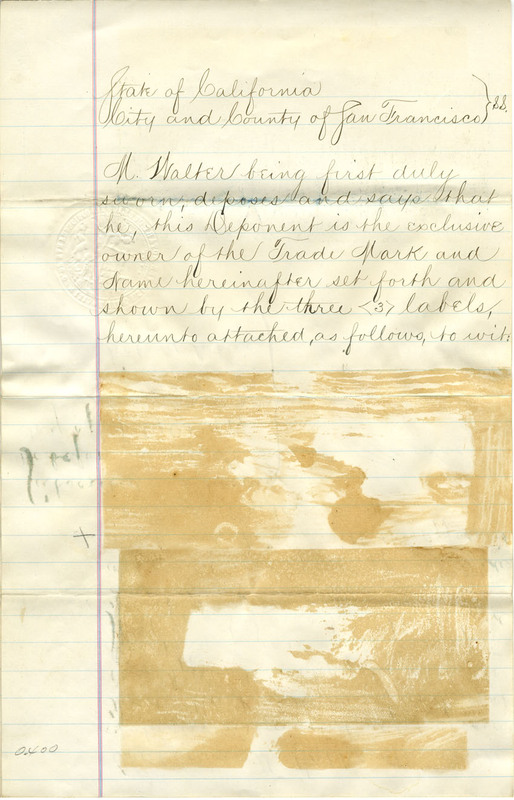 State of California
City and County of San Francisco } S.S.
M. Walter being first duly
sworn, deposes and says that
he, this Deponent is the exclusive
owner of the Trade Mark and
Name hereinafter set forth and
shown by the three <3> labels,
hereunto attached, as follows, to wit:
0.400